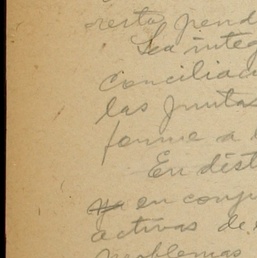 resto pend
Sea integ
conciliac
las juntas
forme a l
En dist
en conju
activas de
problemas